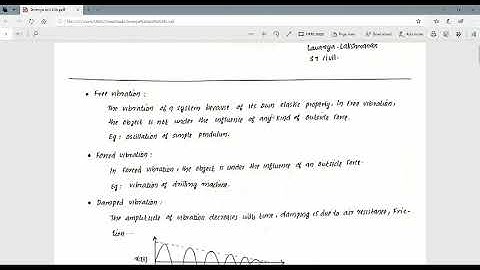 Lavanya Lakshmanan
S7 Civil
• Free vibration:
The vibration of a system because of its own elastic property. In free vibration,
the object is not under the influence of any kind of outside force.
Eg: oscillation of simple pendulum.
• Forced vibration:
In forced vibration, the object is under the influence of an outside force.
Eg: vibration of drilling machine.
• Damped vibration:
The amplitude of vibration decreases with time, damping is due to air resistance, fric-
tion ....